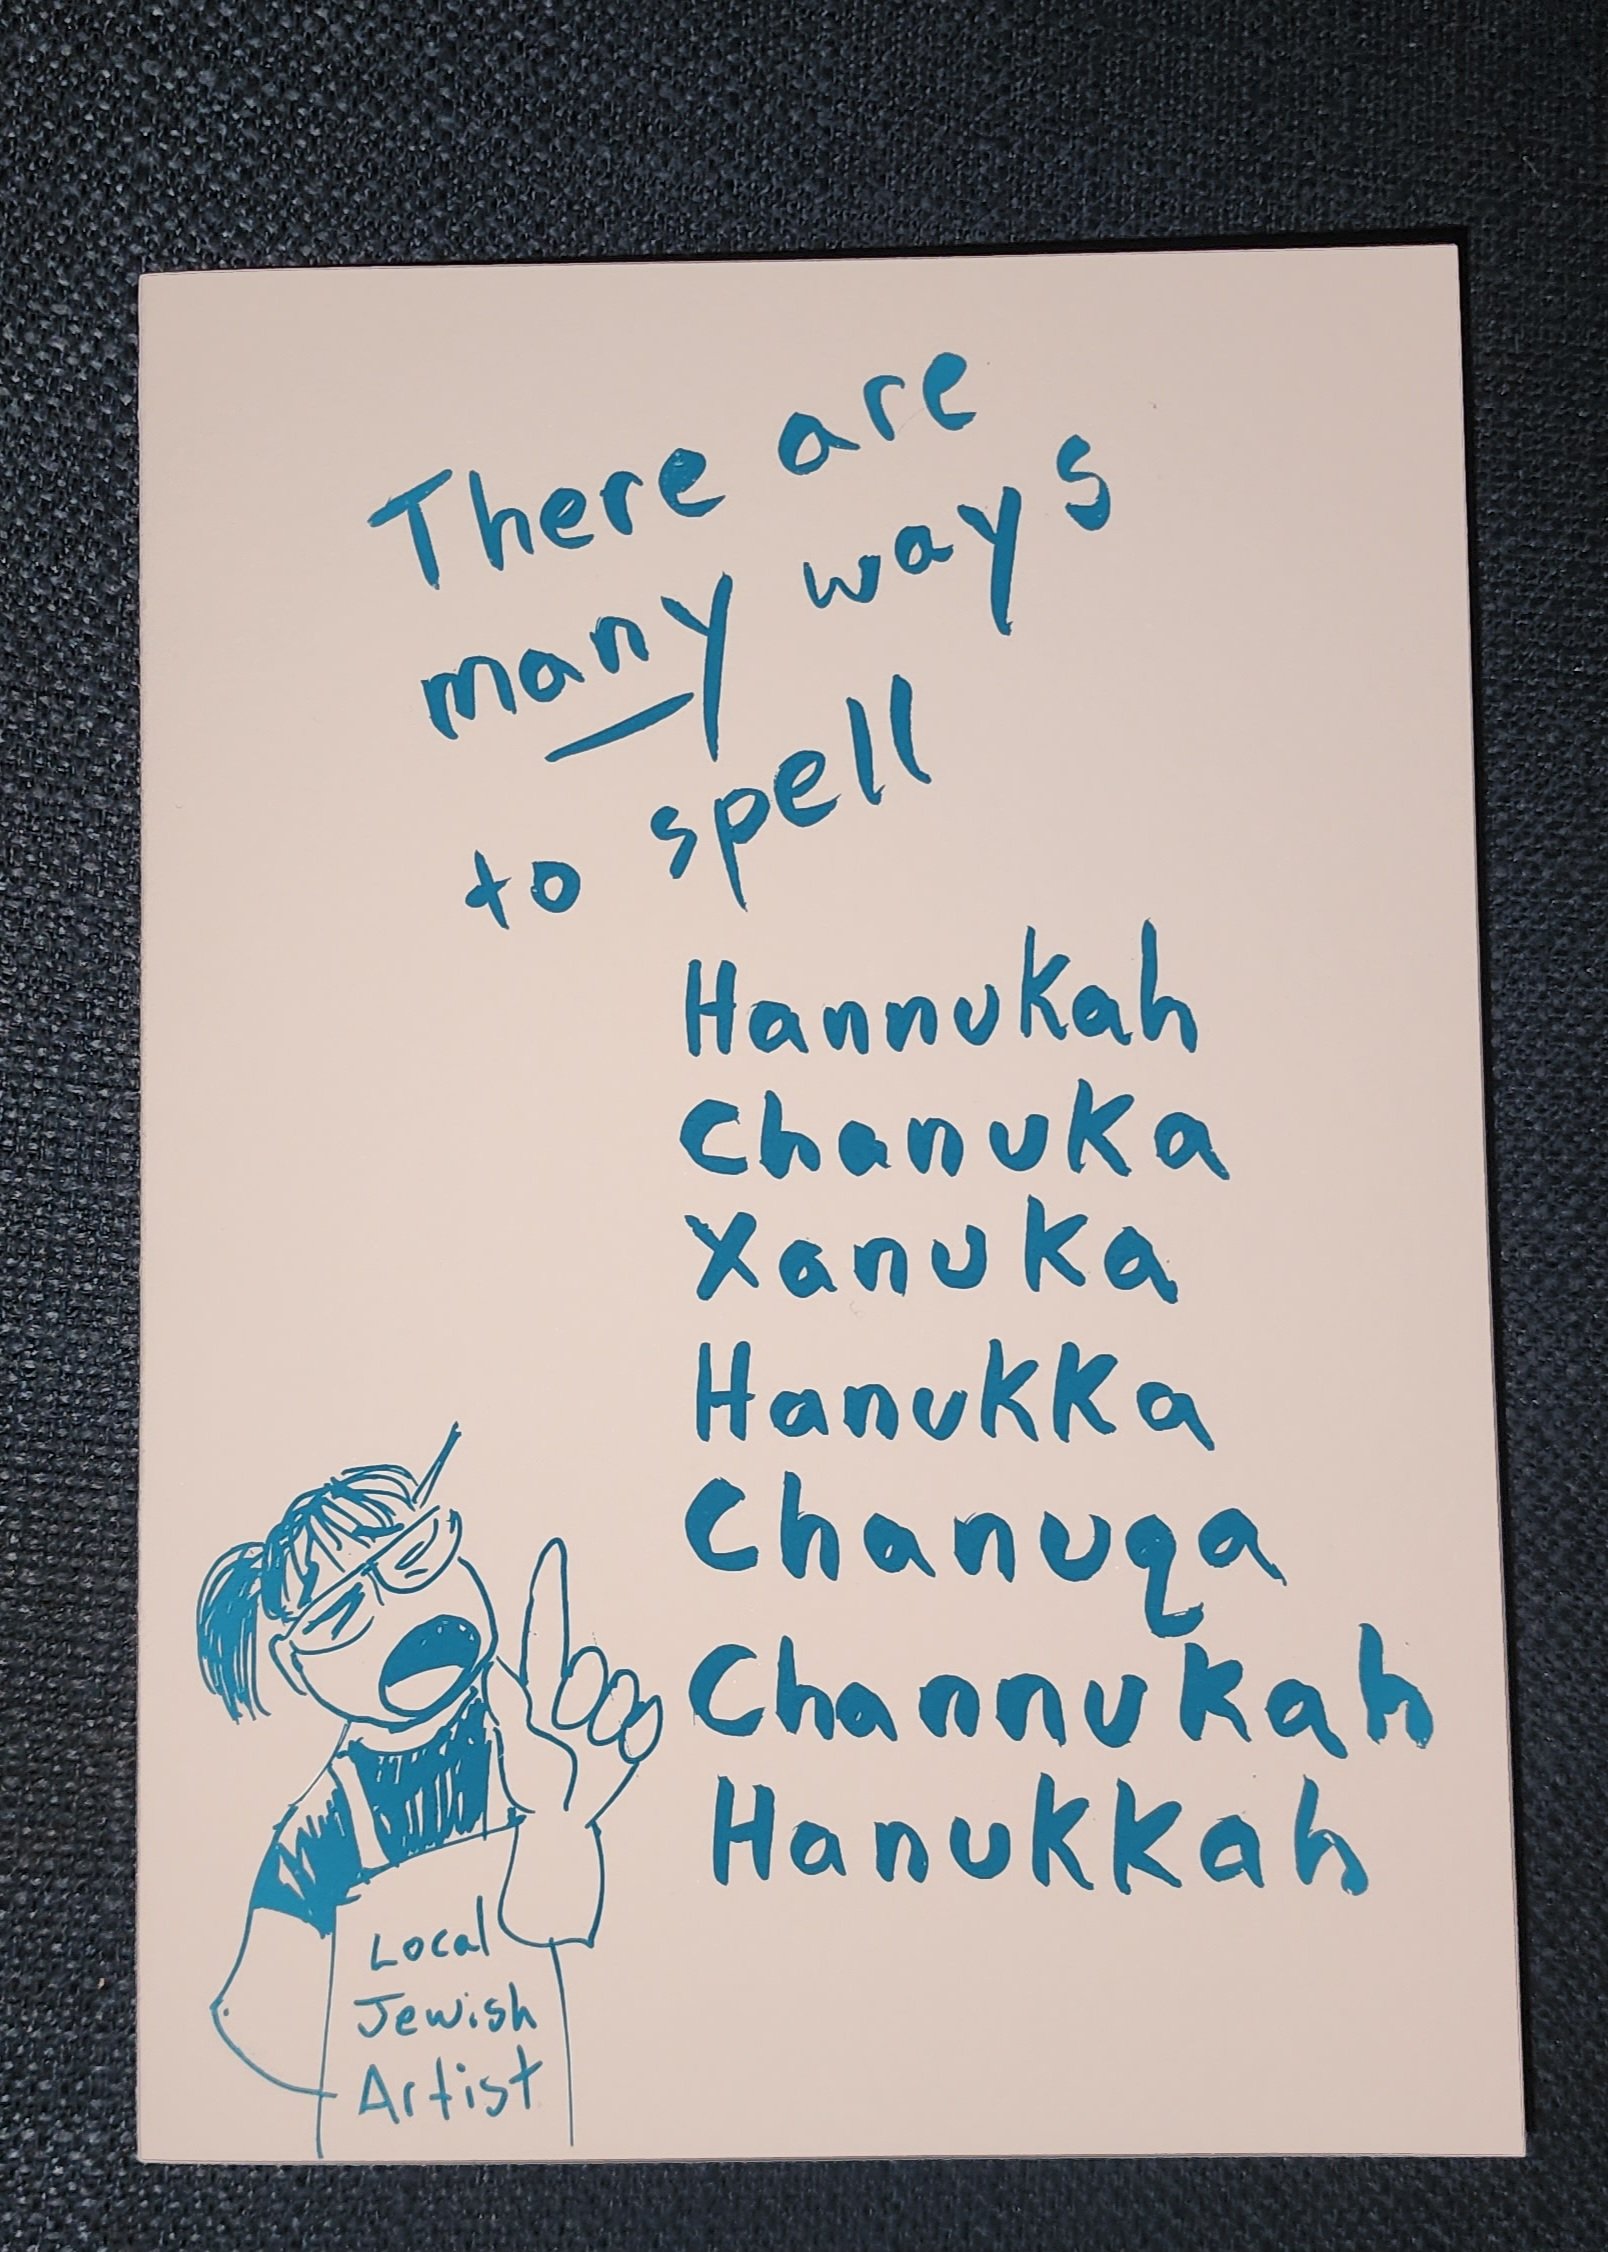 There are
many ways
to spell
Hannukah
Chanuka
Xanuka
Hanukka
Chanuqa
Channukah
Hanukkah
Local
Jewish
Artist